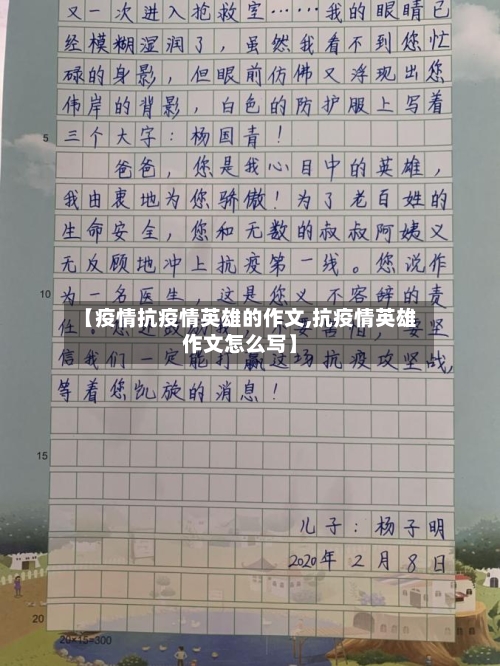 又一次进入抢救室……我的眼睛已
经模糊湿润了，虽然我看不到您忙
碌的身影，但眼前仿佛又浮现出您
伟岸的背影，白色的防护服上写着
5
三个大字：杨国青！
爸爸，您是我心目中的英雄，
我由衷地为您骄傲！为了老百姓的
生命安全，您和无数的叔叔阿姨义
无反顾地冲上抗疫第一线。您说作
10
为一名医生，这是您义不容辞的责
【疫情抗疫情英雄的作文,抗疫情英雄
任
坚
作文怎么写】
信我们一定能打赢这场抗疫攻坚战，
等着您凯旋的消息！
15
儿子：杨子明
2020年2月8日
20
20×15=300